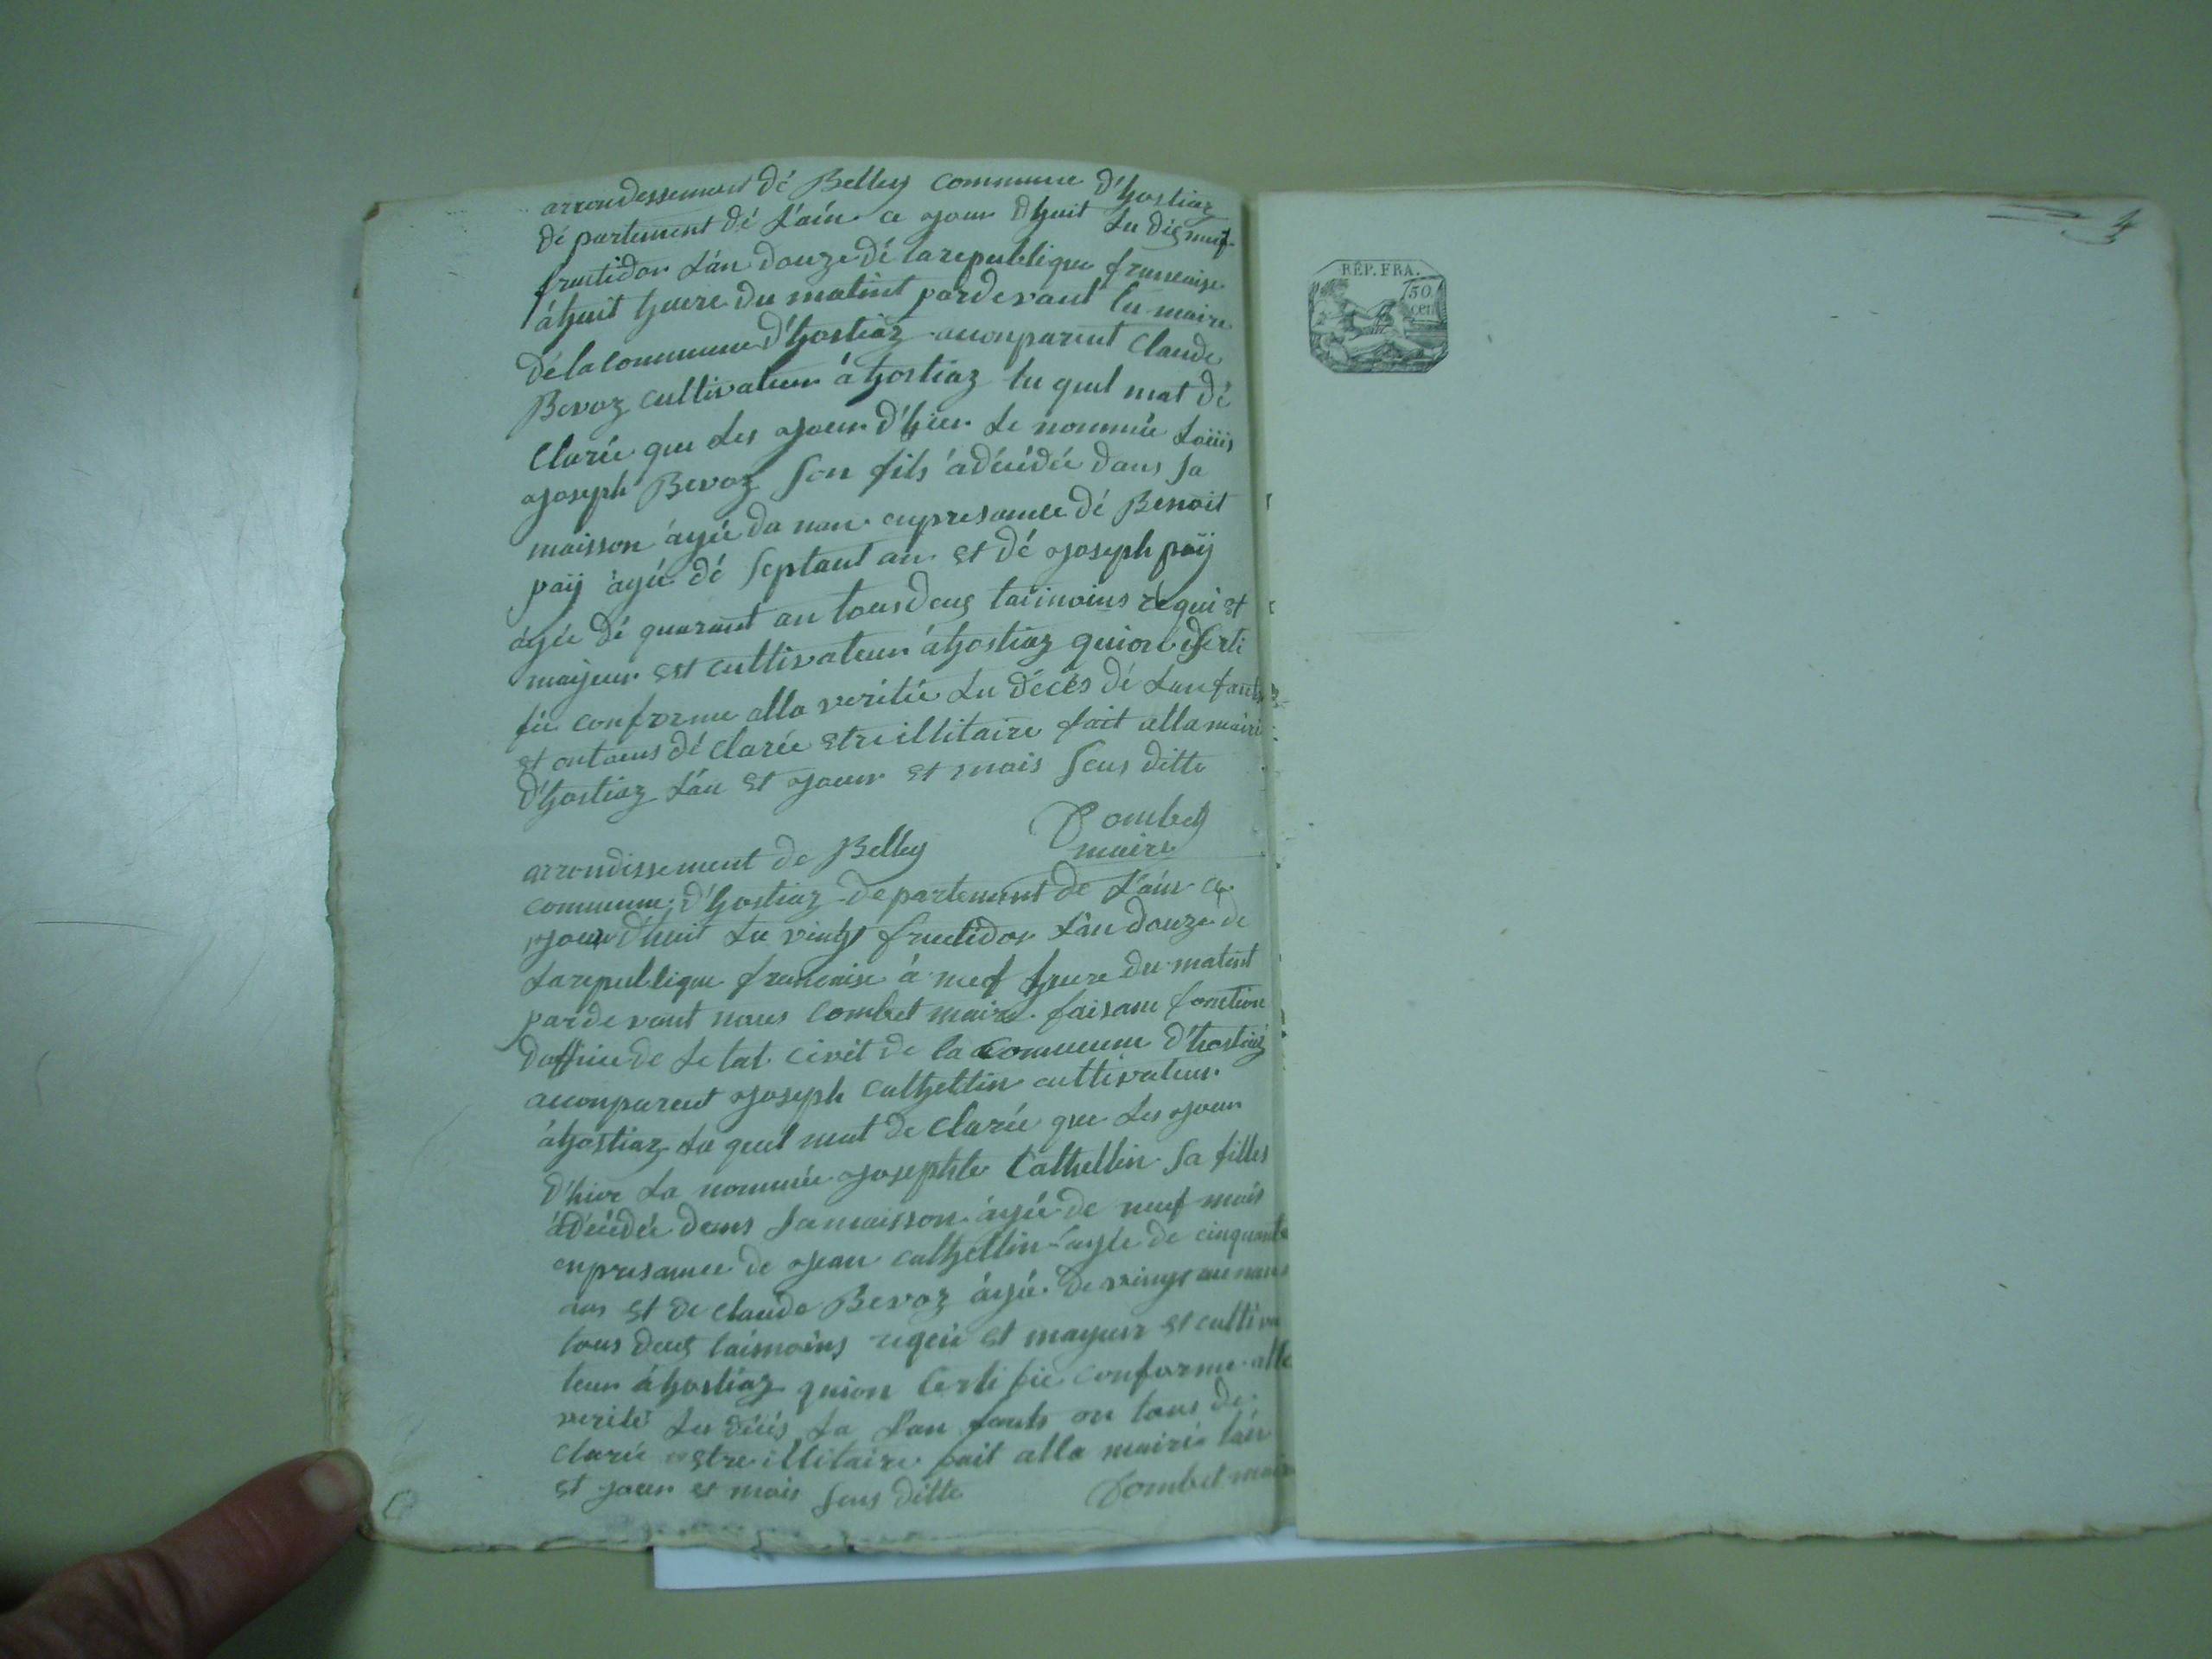 arrondessement dé Belley commune d'hostiaz
dé partement dé L'ain ce ajour dhuit Lu dis neuf
fructidor L'an douze dé la republique francaise
á huit heure du matint pardevant lu maire
dé la commune d'hostiaz aconparent Claude
Bevoz cultivateur á hostiaz lu quel mat dé
Clarée que Les ajour d'hier Le nommée Loüis
ajoseph Bevoz son fils adécédée dans sa
maisson ágée du nan enpresance dé Benoit
paÿ ágée dé septant an et dé ajoseph paÿ
ágée dé quarant an tous deus taimoins réqui et
majeur est cultivateur á hostiaz quion certi
fie conforme alla veritée Lu décés dé Lanfants
et ontous dé clarée etre illitaire fait alla mairi
d'hostiaz L'an et ajour et mois sus ditte
Combet
maire
arrondissement de Belley
commune d'hostiaz departement de L'ain ce
ajour d'huit Lu vingt fructidor L'an douze de
La republique francaise á neuf heure du matint
par de vant nous Combet maire faisant fonction
dofficie de Letat civit de la commune d'hostiaz
aconparent ajoseph cathellin cultivateur
á hostiaz Lu quel mat de Clarée que Les ajour
d'hier La nommée ajosephte Cathellin sa filles
adécédée dans sa maisson ágée de neuf mois
enpresance de ajean cathellin ágée de cinquante
ans et de claude Bevoz ágée de vingt
tous deus taimoins requi et mayeur et cultiva
teur á hostiaz quion Certi fie conforme alla
verité Lu décés La Lan fants on tous de
clarée estre illitaire fait alla mairié L'an
et jour et mois sus ditte Combet maire
RÉP. FRA.
50
cen
4